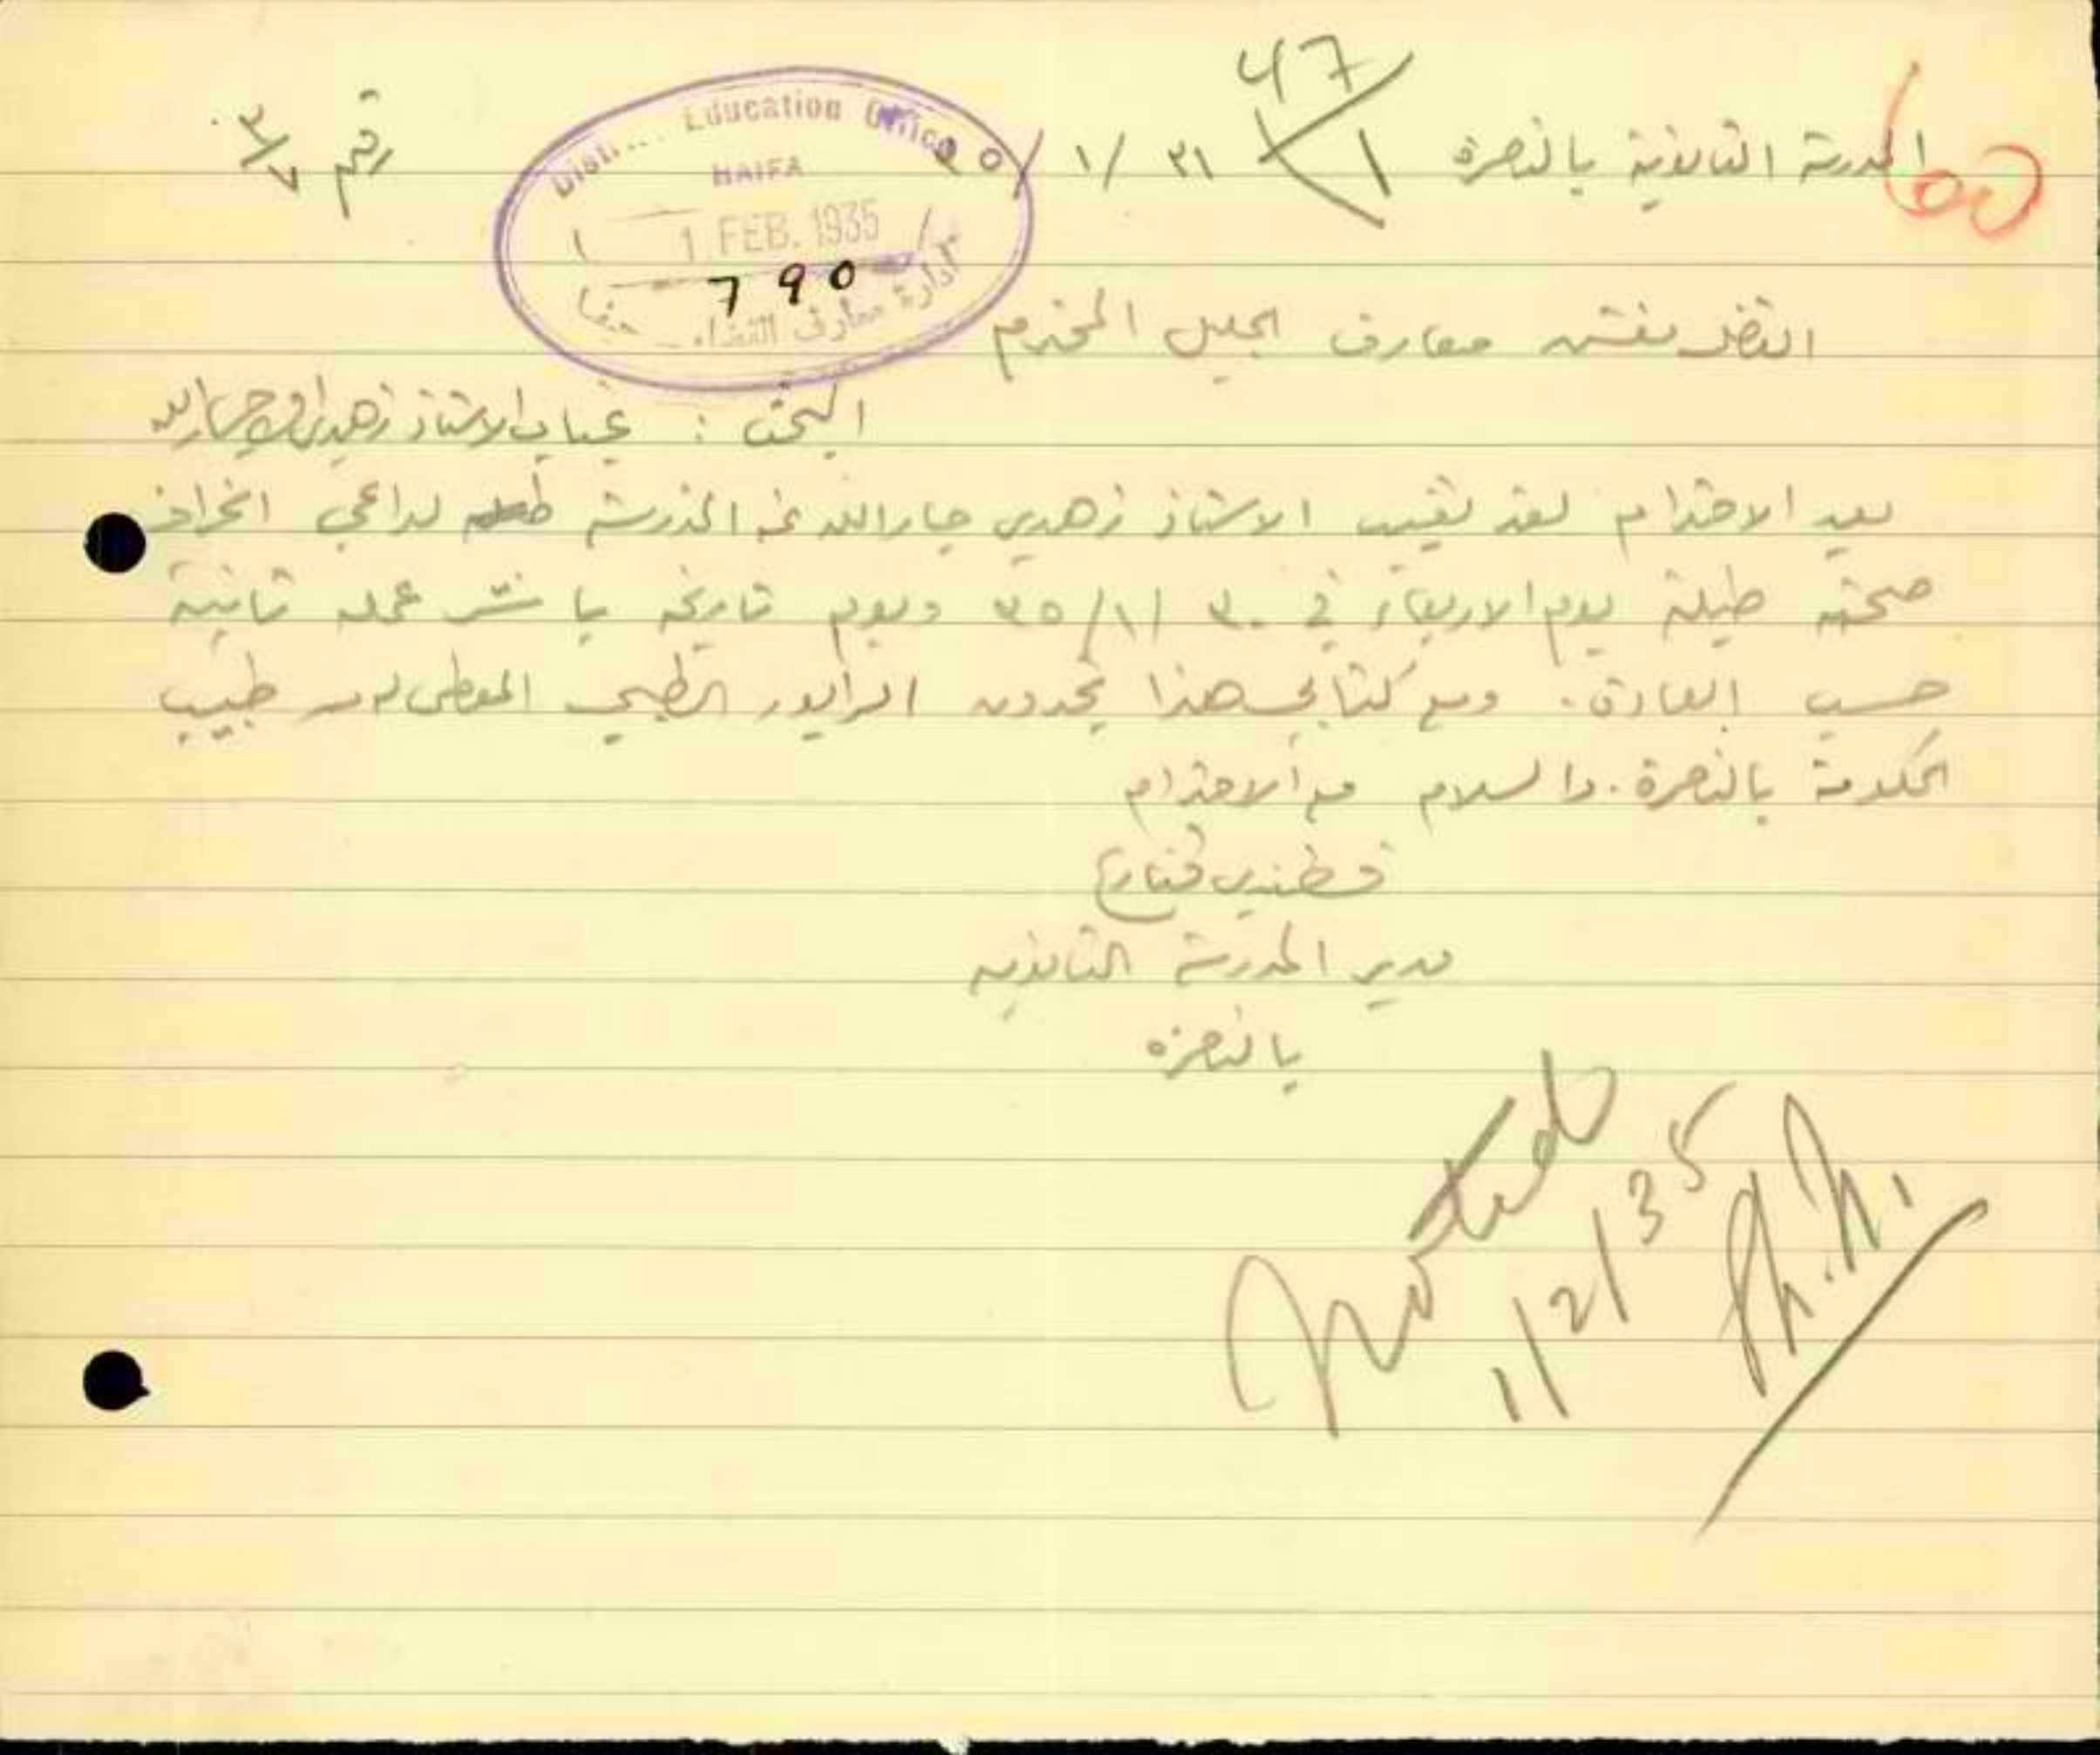 60
47/1
المدرسة الثانوية بالناصرة ٣١ /١ /٣٥
رقم ٣/٧
District Education Office
HAIFA
1 FEB. 1935
790
ادارة معارف القضاء ـ حيفا
مفتش معارف الجليل المحترم
البحث : غياب الاستاذ زهدي جارالله
بعد الاحترام لقد تغيب الاستاذ زهدي جارالله عن المدرسة لداعي انحراف
صحته طيلة يوم الاربعاء في ٣٠ /١/ ٣٥ ويوم تاريخه باشر عمله ثانية
حسب العادة. ومع كتابي هذا تجدون الرابور الطبي المعطى له من طبيب
الحكومة بالناصرة. والسلام مع الاحترام
قسطندي قنازع
مدير المدرسة الثانوية
بالناصرة
Noted
1/2/35